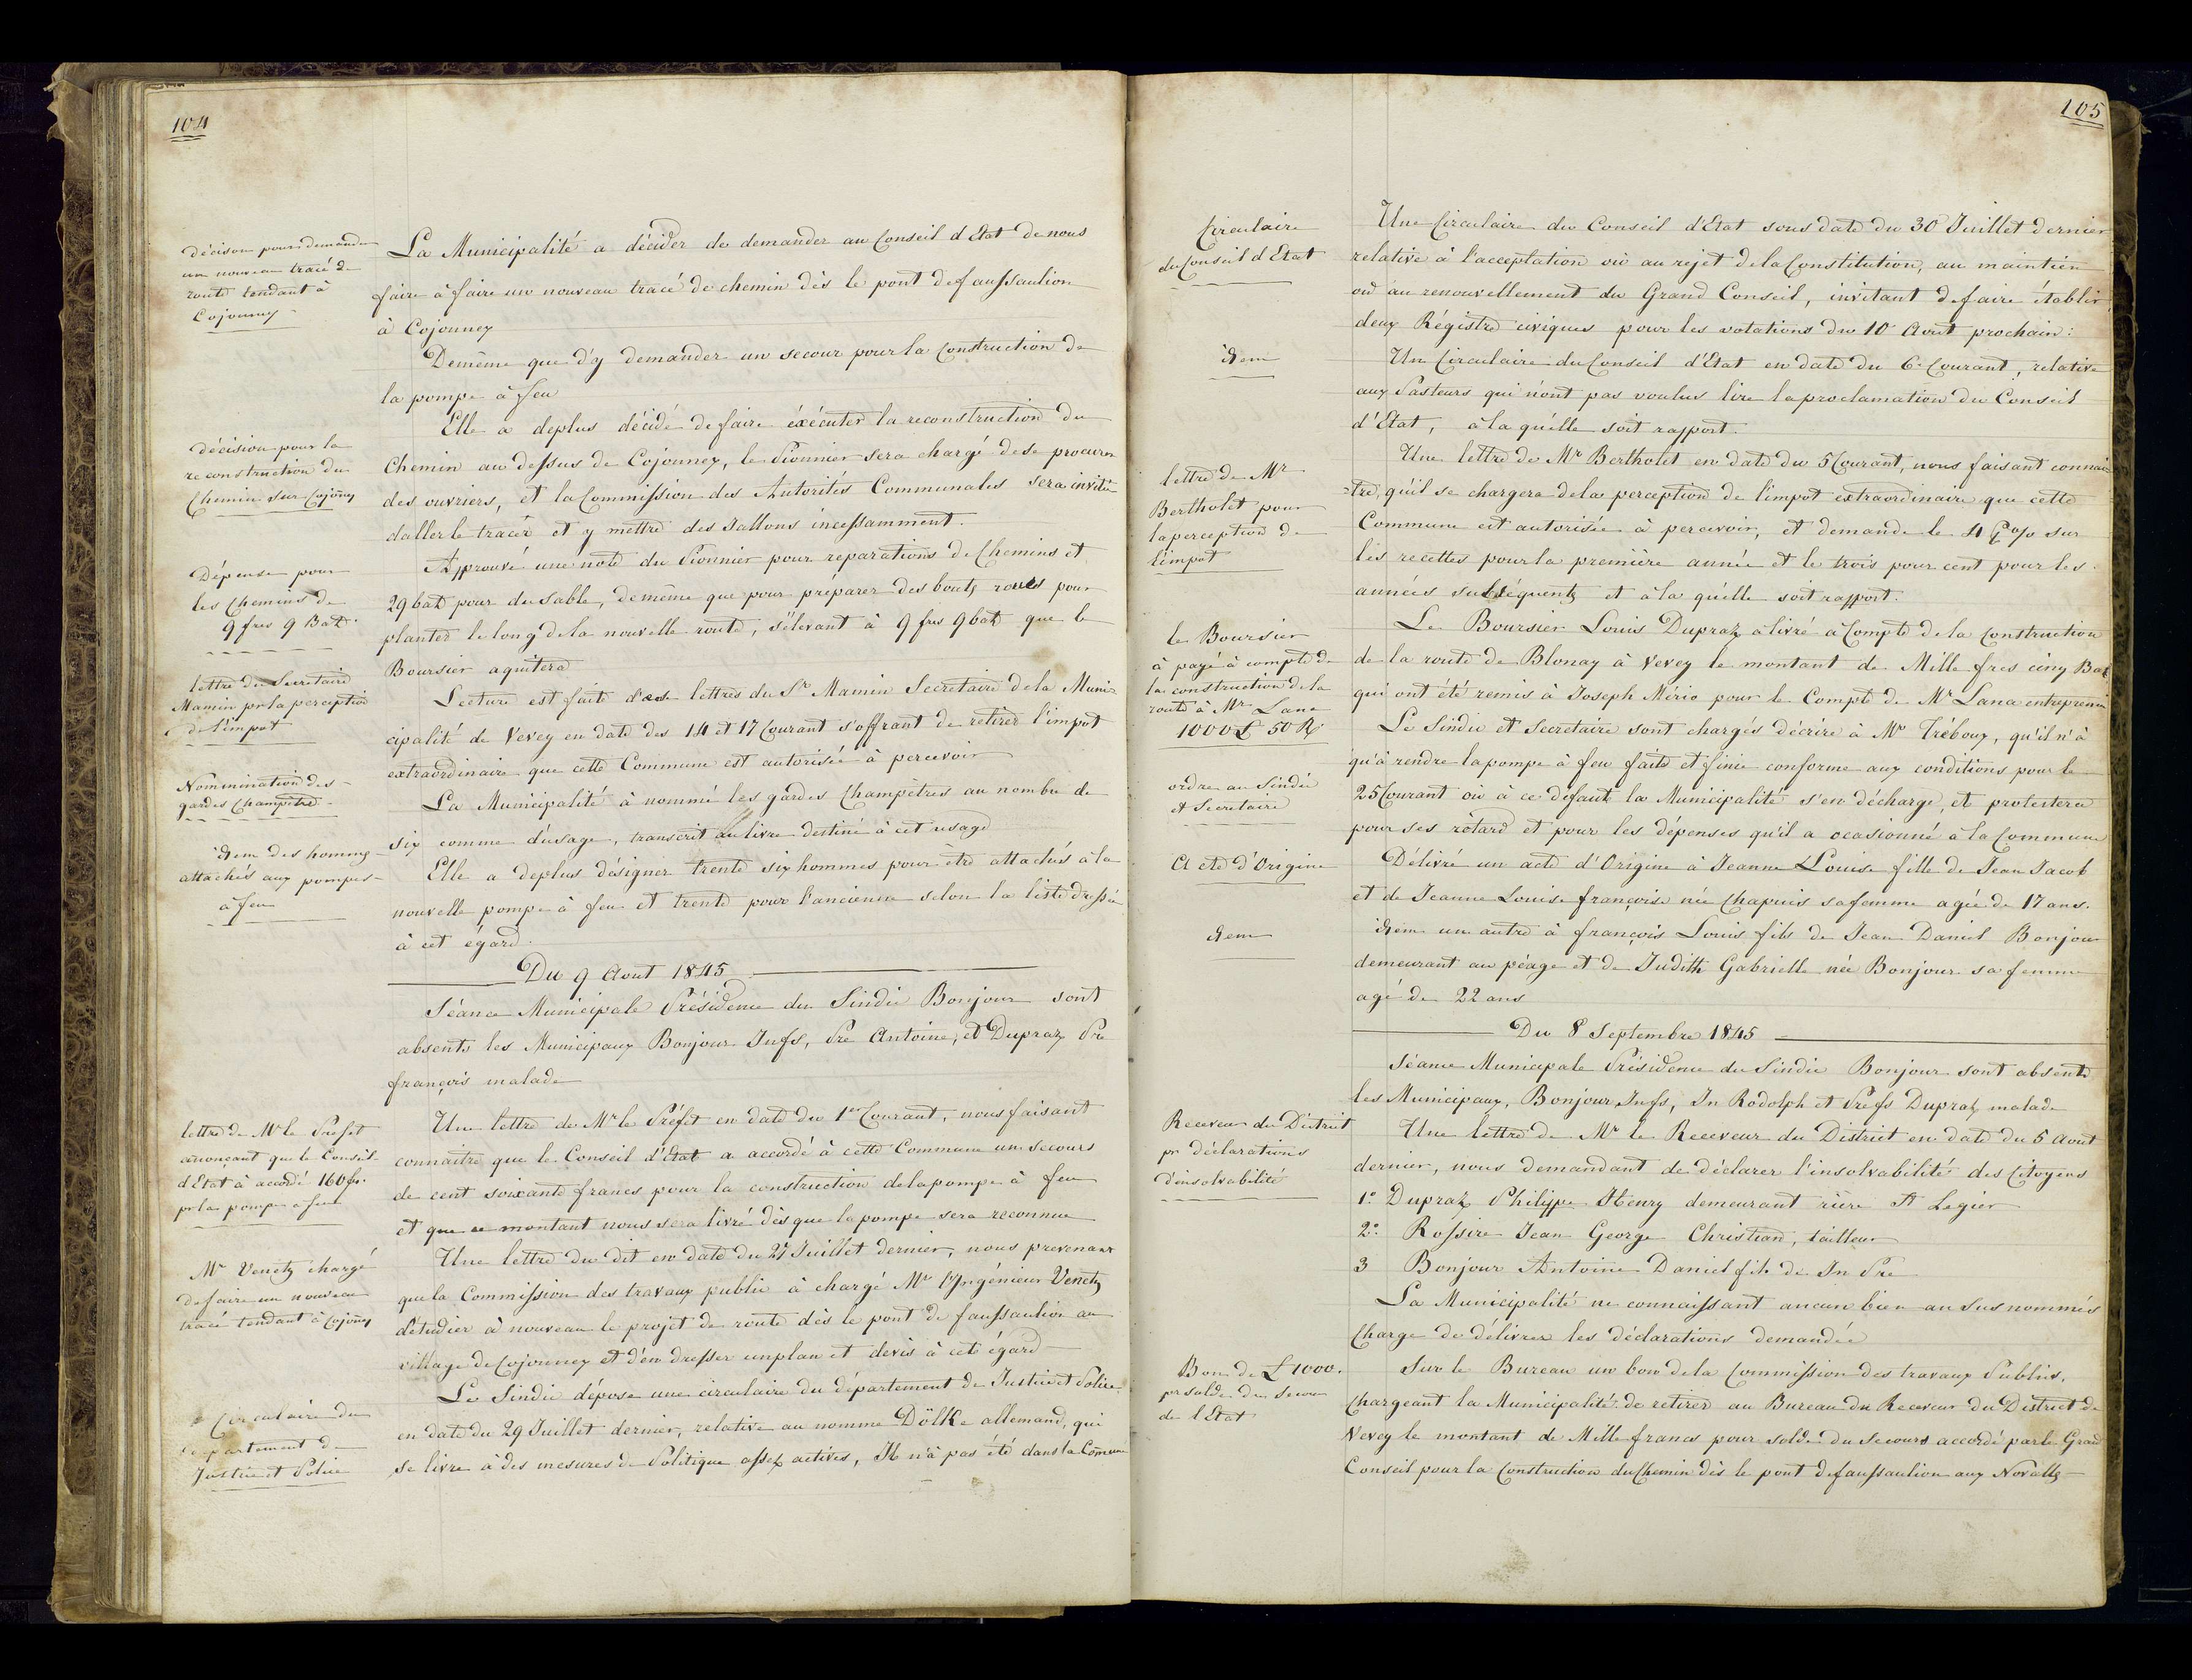 104
Décison pour demander
un nouveau tracé de
route tendant à
Cojonney
La Municipalité a décider de demander au Conseil d'Etat de nous
faire à faire un nouveau tracé de chemin dès le pont de faussaulion
à Cojonney
Demême que d'y demander un secour pour la Construction de
la pompe à feu
décision pour la
reconstruction du
Chemin sur Cojoney
Elle a deplus décidé de faire éxécuter la reconstruction du
Chemin au dessus de Cojonney, le Pionnier sera chargé de se procurer
des ouvriers, et la Commission des Autorités Communales sera invitée
daller le tracer et y mettre des Jallons incessamment.
Dépense pour
les Chemins de
9 frcs 9 Batz
Approuvé une note du Pionnier pour reparations de Chemins et
29 batz pour du sable, demême que pour préparer des boutz roues pour
planter le long de la nouvelle route, s'élevant à 9 frcs 9 batz que le
Boursier aquitera
lettre du Secretaire
Mamin pr la perception
de l'impot
Lecture est faite des lettres du Sr Mamin Secretaire de la Muni-
cipalité de Vevey en date des 14 et 17 Courant s'offrant de retirer l'impot
extraordinaire que cette Commune est autorisée à percevoir
Nominination des
gardes Champetre
La Municipalité à nommé les gardes Champêtres au nombre de
six comme d'usage, transcrit au livre destiné à cet usage
idem des hommes
attachés aux pompes
à feu
Elle a deplus désigner trente six hommes pour être attachés à la
nouvelle pompe à feu et trente pour l'ancienne selon la liste dressée
à cet égard.
Du 9 Aout 1845
Séance Municipale Présidence du Sindic Bonjour sont
absents les Municipaux Bonjour Jnfs, Pre Antoine, et Dupraz Pre
françois malade
lettre de Mr le Prefet
anonçant que le Conseil
d'Etat à accordé 160 fr.
pr la pompe à feu
Une lettre de Mr le Préfet en date du 1er Courant, nous faisant
connaitre que le Conseil d'Etat a accordé à cette Commune un secours
de cent soixante francs pour la construction de la pompe à feu
et que ce montant nous sera livré dès que la pompe sera reconnue
Mr Venetz chargé
de faire un nouveau
tracé tendant à Cojoney
Une lettre du dit en date du 27 Juillet dernier, nous prevenant
que la Commission des travaux public à chargé Mr l'Ingénieur Venetz
d'étudier à nouveau le projet de route dès le pont de faussaulion au
village de Cojonney et d'en dresser un plan et devis à cet égard
Circulaire du
département de
Justice et Police
Le Sindic dépose une circulaire du département de Justice et Police
en date du 29 Juillet dernier, relative au nomme Dölke allemand, qui
se livre à des mesures de Politique assez actives, Il n'a pas été dans la Comune
105
Circulaire
du Conseil d'Etat
Une Circulaire du Conseil d'Etat sous date du 30 Juillet dernier
relative à l'acceptation où au rejet de la Constitution, au maintien
où au renouvellement du Grand Conseil, invitant de faire établir
deux Régistre civiques pour les votations du 10 Aout prochain:
idem
Un Circulaire du Conseil d'Etat en date du 6 Courant, relative
aux Pasteurs qui n'ont pas voulus lire la proclamation du Conseil
d'Etat, à la quélle soit rapport.
lettre de Mr
Bertholet pour
la perception de
l'impot
Une lettre de Mr Bertholet en date du 5 Courant, nous faisant connai
=tre, qu'il se chargera de la perception de l'impot extraordinaire que cette
Commune est autorisée à percevoir, et demande le 4 P% sur
les recettes pour la première année et le trois pour cent pour les
années subséquentz et à la quélle soit rapport.
le Boursier
à payé à compte de
la construction de la
route à Mr Lana
1000 £ 50 R
Le Boursier Louis Dupraz à livré à Compte de la Construction
de la route de Blonay à Vevey le montant de Mille frcs cinq Batz
qui ont été remis à Joseph Mério pour le Compte de Mr Lana entrepreneur
ordre au Sindic
et Secretaire
Le Sindic et Secretaire sont chargés décrire à Mr Tréboux, qu'il n'à
qu'à rendre la pompe à feu faite et finie conforme aux conditions pour le
25 Courant où à ce défaut la Municipalité s'en décharge, et protestera
pour ses rétard et pour les dépenses qu'il a ocasionné à la Commune
Acte d'Origine
Délivré un acte d'Origine à Jeanne Louise fille de Jean Jacob
et de Jeanne Louise françoise née Chapuis sa femme agée de 17 ans.
idem
idem un autre à françois Louis fils de Jean Daniel Bonjour
demeurant au péage et de Judith Gabrielle née Bonjour sa femme
agé de 22 ans
Du 8 Septembre 1845
Séance Municipale Présidence du Sindic Bonjour sont absents
les Municipaux, Bonjour Jnfs, Jn Rodolph et Prefs Dupraz malade
Receveur du District
pr déclarations
d'insolvabilité
Une lettre de Mr le Receveur du District en date du 5 Aout
dernier, nous demandant de déclarer l'insolvabilité des Citoyens
1o Dupraz Philippe Henry demeurant rière St Legier
2o Rossire Jean George Christian, tailleur
3 Bonjour Antoine Daniel fils de Jn Pre
La Municipalité ne connaissant aucun bien au sus nommés
Charge de délivrer les déclarations demandée
Bon de £ 1000.
pr solde du secour
de l'Etat
Sur le Bureau un bon de la Commission des travaux Publics,
chargeant la Municipalité de retirer au Bureau du Receveur du District de
Vevey le montant de Mille francs pour solde du Secours accordé par le Grand
Conseil pour la Construction du Chemin dès le pont de faussaulion aux Novalles